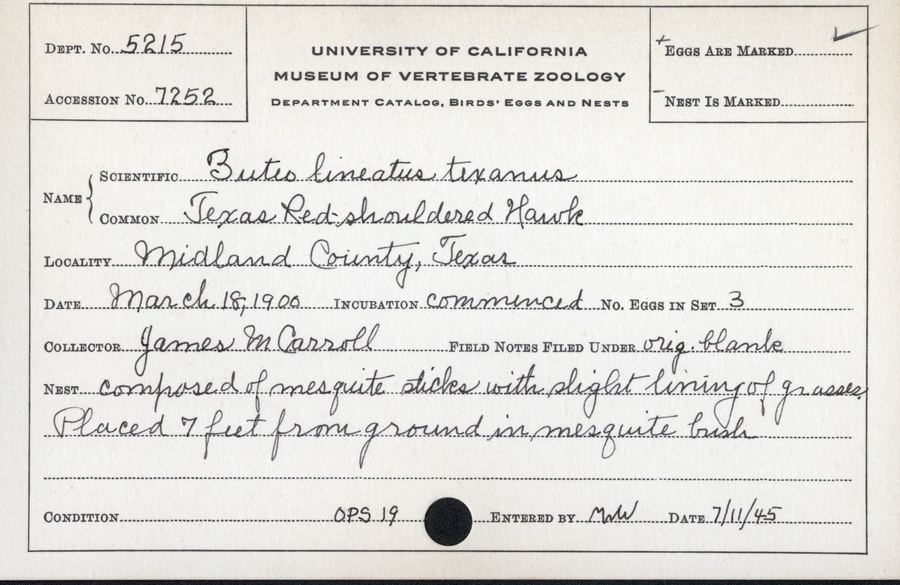 DEPT. No. 5215
ACCESSION No. 7252
UNIVERSITY OF CALIFORNIA
MUSEUM OF VERTEBRATE ZOOLOGY
DEPARTMENT CATALOG, BIRDS' EGGS AND NESTS
+EGGS ARE MARKED ✓
-NEST IS MARKED
NAME { SCIENTIFIC Buteo lineatus texanus
COMMON Texas Red-shouldered Hawk
LOCALITY Midland County, Texas
DATE March 18, 1900 INCUBATION commenced No. EGGS IN SET 3
COLLECTOR James McCarroll FIELD NOTES FILED UNDER orig. blank
NEST composed of mesquite sticks with slight lining of grasses.
Placed 7 feet from ground in mesquite bush
CONDITION OPS 19 ENTERED BY DATE 7/11/45